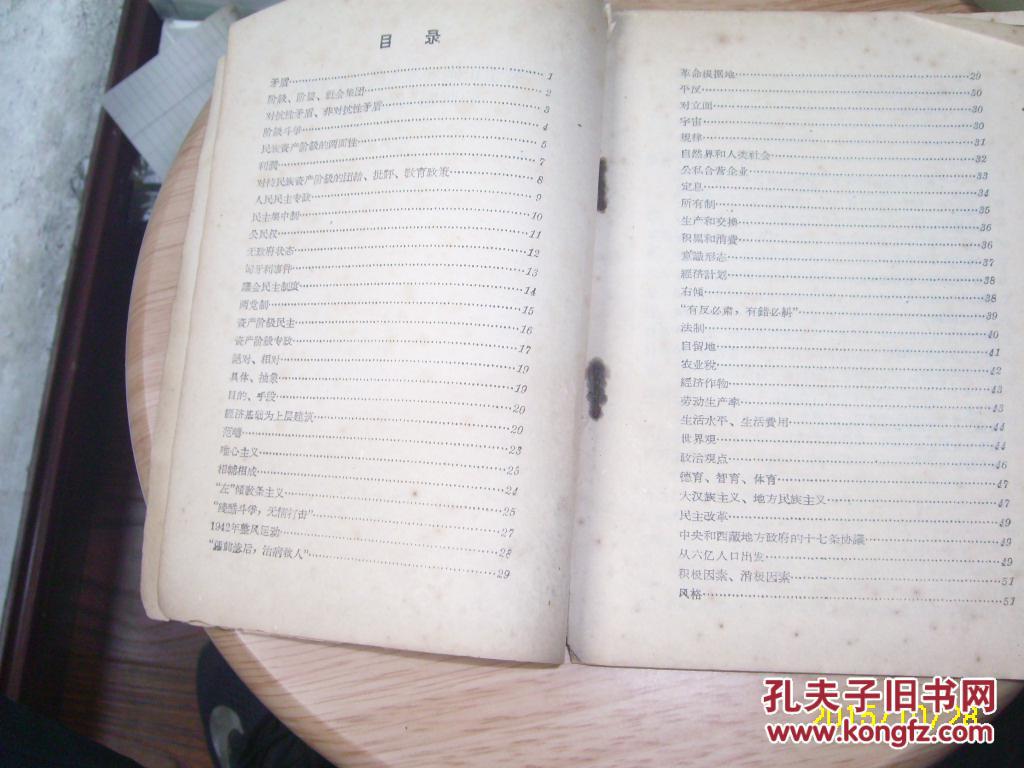 目 录
矛盾 1
阶級、阶层、社会集团 2
对抗性矛盾、非对抗性矛盾 3
阶級斗爭 4
民族资产阶级的两面性 5
利潤 7
对待民族资产阶级的团結、批評、敎育政策 8
人民民主专政 9
民主集中制 10
公民权 11
无政府状态 12
匈牙利事件 13
議会民主制度 14
两党制 15
资产阶级民主 16
资产阶级专政 17
絕对、相对 19
具体、抽象 19
目的、手段 20
經济基础与上层建筑 20
范疇 23
唯心主义 25
相輔相成 24
“左”傾敎条主义 25
“残酷斗爭，无情打击” 27
1942年整风运动 28
“懲前毖后，治病救人” 29
革命根据地 29
平反 30
对立面 30
宇宙 30
規律 31
自然界和人类社会 32
公私合营企业 33
定息 34
所有制 35
生产和交換 36
积累和消費 36
意識形态 37
經济計划 38
右傾 38
“有反必肃，有錯必糾” 39
法制 40
自留地 41
农业税 42
經济作物 43
劳动生产率 43
生活水平、生活費用 44
世界观 44
政治观点 46
德育、智育、体育 47
大汉族主义、地方民族主义 47
民主改革 49
中央和西藏地方政府的十七条协議 49
从六亿人口出发 49
积极因素、消极因素 51
风格 51
孔夫子旧书网
www.kongfz.com